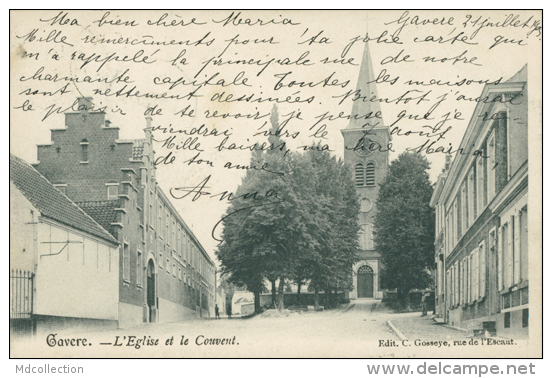 Ma bien chère Maria Gavere 21 juillet
Mille remerciments pour ta jolie carte qui
m'a rappelé la principale rue de notre
charmante capitale Toutes les maisons
sont nettement dessinées. Bientôt j'aurai
le plaisir de te revoir, je pense que je
viendrai vers le août
Mille baisers, ma chère Maria
de ton amie
Anna
Gavere. — L'Eglise et le Couvent.
Edit. C. Gosseye, rue de l'Escaut.
MDcollection
© delcampe.net